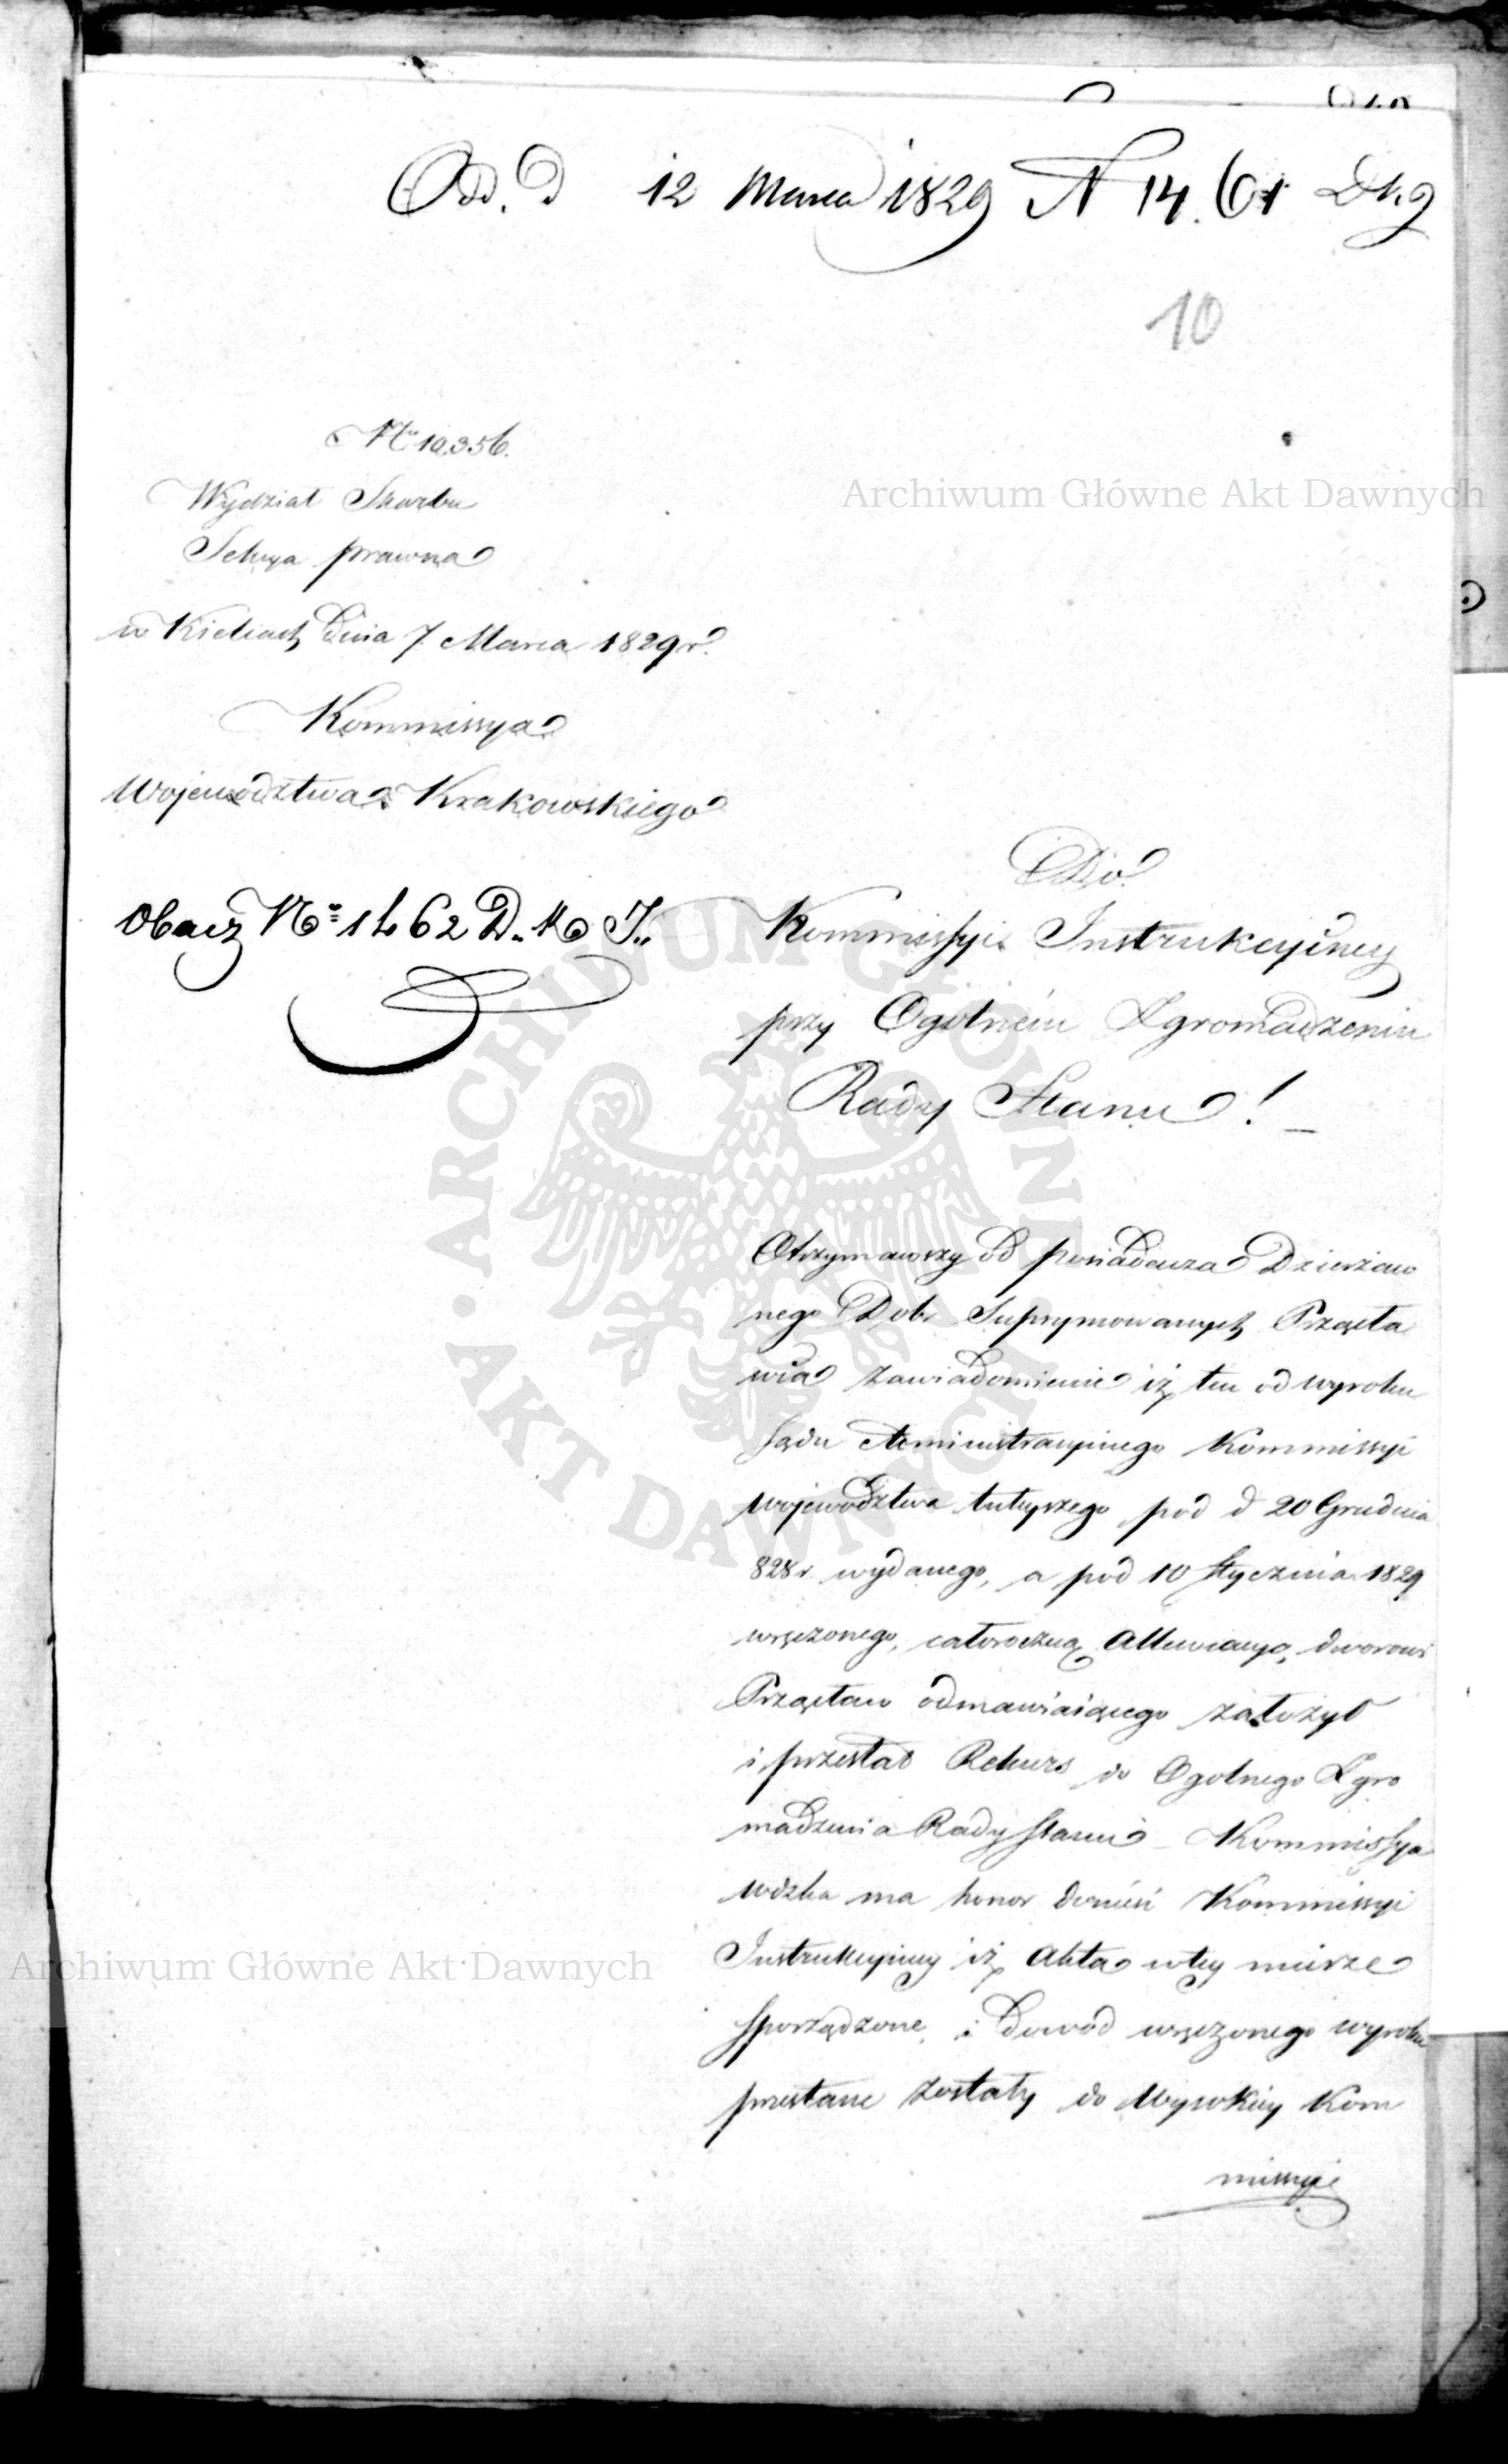 Od. d 12 Marca 1829 N 1461 D.K.J
10
Nro 10.356.
Wydział Skarbu
Sekcya prawna
w Kielcach dnia 7. Marca 1829 r.
Kommissya
Województwa Krakowskiego
Obacz No 1462 D. K. J.
Do
Kommissyi Instrukcyiney
przy Ogólném Zgromadzeniu
Rady Stanu!
Otrzymawszy od posiadacza Dzierżaw
nego Dobr Suprymowanych Przęsła
wia zawiadomienie iż ten od wyroku
Sądu Administracyinego Kommissyi
Województwa tuteyszego pod d 20 Grudnia
828 r. wydanego, a pod 10 Stycznia 1829
wręczonego, całoroczną dworowi
odmawiaiącego założył
i przesłał Rekurs do Ogolnego Zgro
madzenia Rady Stanu – Kommissya
Wdzka ma honor donieść Kommissyi
Instrukcyiney iż Akta w tey mierze
sporządzone, i dowód wręczonego wyroku
przesłane zostały do Wysokiey Kom
missyi
Archiwum Główne Akt Dawnych
ARCHIWUM GŁÓWNE AKT DAWNYCH
Archiwum Główne Akt Dawnych